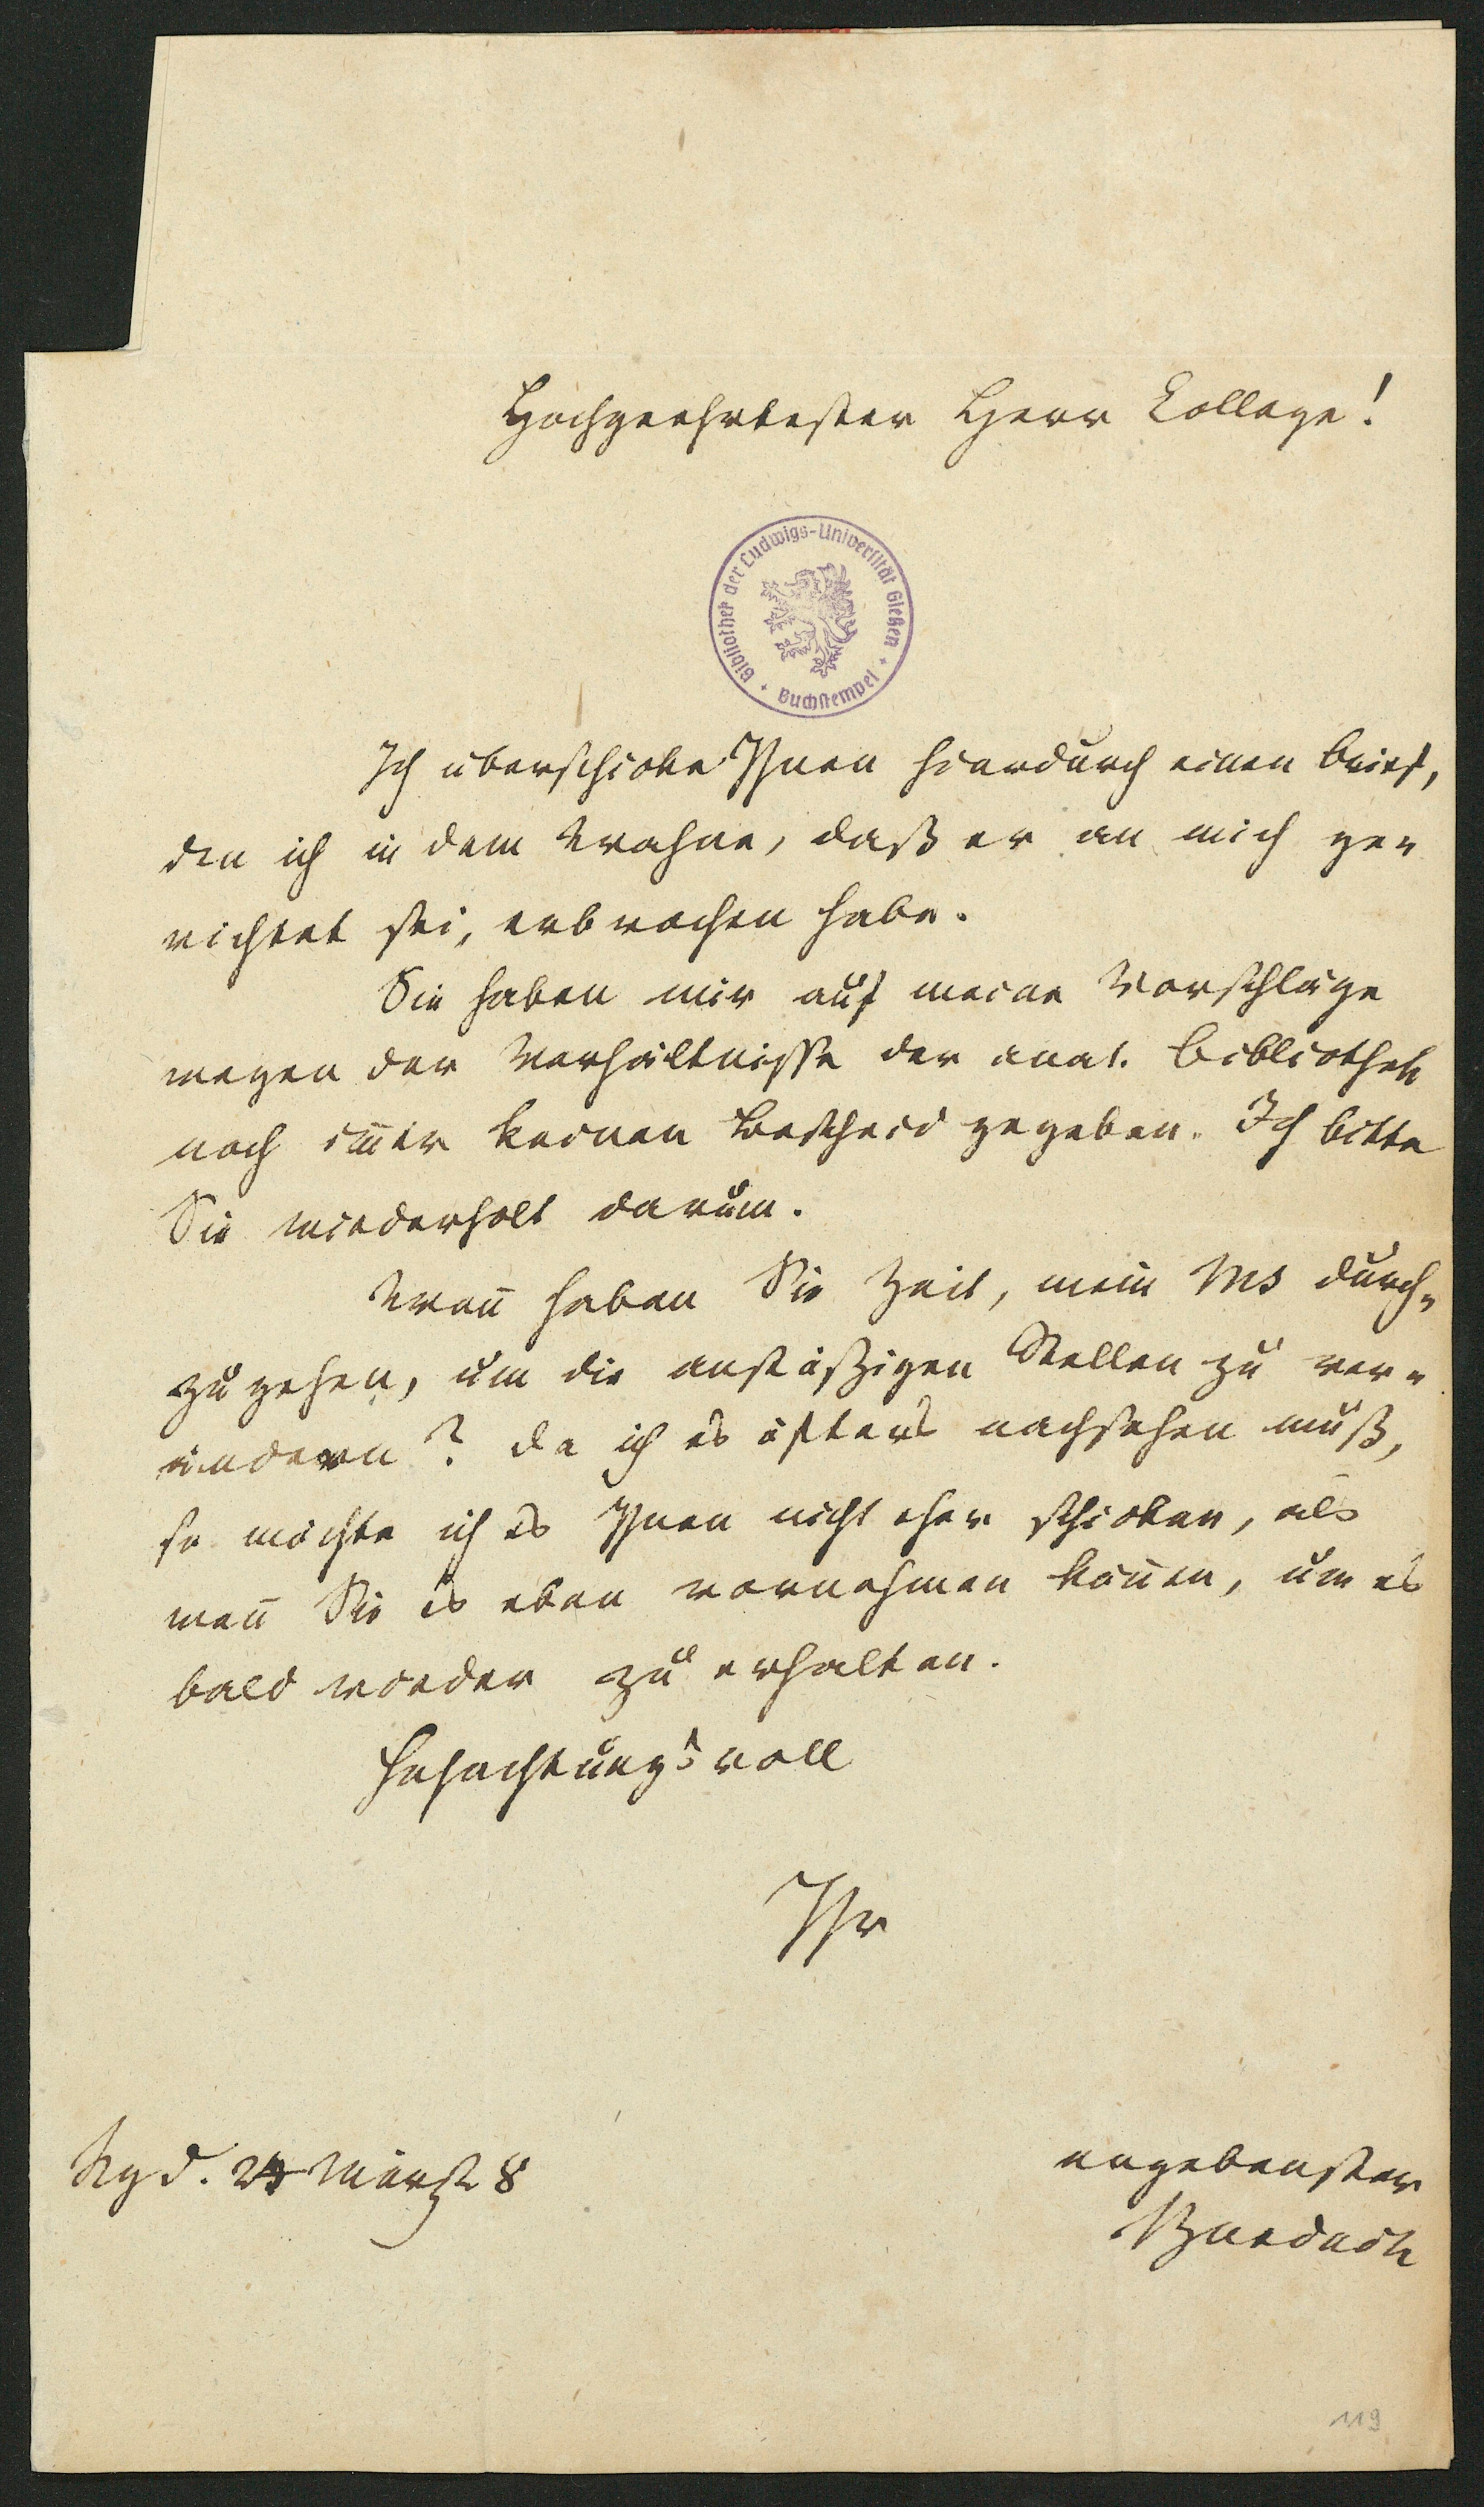 Hochgeehrtester Herr College!
Bibliothek der Ludwigs-Universität Gießen
Buchstempel
Ich überschicke Ihnen hierdurch einen Brief,
den ich in dem Wahne, daß er an mich ge=
richtet sei, erbrochen habe.
Sie haben mir auf meine Vorschläge
wegen der Verhältnisse der anat. Bibliothek
noch im̄er keinen Bescheid gegeben. Ich bitte
Sie wiederholt darum.
Wan̄ haben Sie Zeit, mein Ms durch=
zugehen, um die anstößigen Stellen zu ver=
ändern? da ich es öfters nachsehen muß,
so möchte ich es Ihnen nicht eher schicken, als
wen̄ Sie es eben vornehmen kön̄en, um es
bald wieder zu erhalten.
Hochachtungsvoll
Ihr
ergebenster
Burdach
Kgb. 24 März 8
119